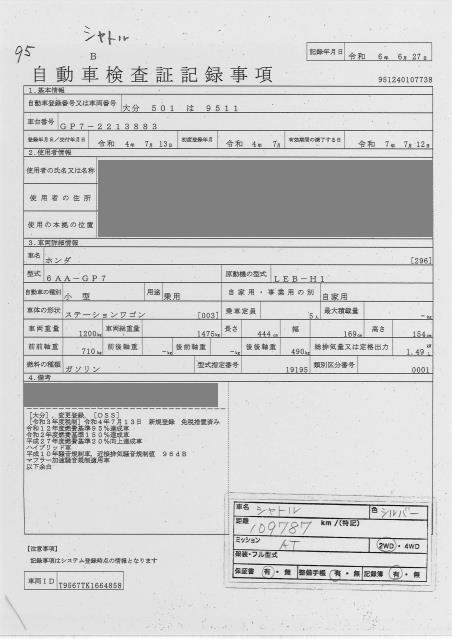 シャトル
95
B
記録年月日 令和 6年 6月 27日
自動車検査証記録事項
951240107738
1.基本情報
自動車登録番号又は車両番号 大分 501 は 9511
車台番号 GP7-2213883
登録年月日/交付年月日 令和 4年 7月 13日 初度登録年月 令和 4年 7月 有効期間の満了する日 令和 7年 7月 12日
2.使用者情報
使用者の氏名又は名称
使用者の住所
使用の本拠の位置
3.車両詳細情報
車名 ホンダ [296]
型式 6AA-GP7 原動機の型式 LEB-H1
自動車の種別 小型 用途 乗用 自家用・事業用の別 自家用
車体の形状 ステーションワゴン [003] 乗車定員 5人 最大積載量 -kg
車両重量 1200kg 車両総重量 1475kg 長さ 444cm 幅 169cm 高さ 154cm
前前軸重 710kg 前後軸重 -kg 後前軸重 -kg 後後軸重 490kg 総排気量又は定格出力 1.49
燃料の種類 ガソリン 型式指定番号 19195 類別区分番号 0001
4.備考
[大分],変更登録,[OSS]
[令和3年度税制]令和4年7月13日 新規登録 免税措置済み
令和12年度燃費基準95%達成車
令和2年度燃費基準150%達成車
平成27年度燃費基準20%向上達成車
ハイブリッド車
平成10年騒音規制車,近接排気騒音規制値 96dB
マフラー加速騒音規制適用車
以下余白
車名 シャトル 色 シルバー
距離 109787 km/(特記)
ミッション AT 2WD・4WD
架装・フル型式
保証書 有・無 整備手帳 有・無 記録簿 有・無
[注意事項]
記録事項はシステム登録時点の情報となります
車両ID T9567TK1664858
95